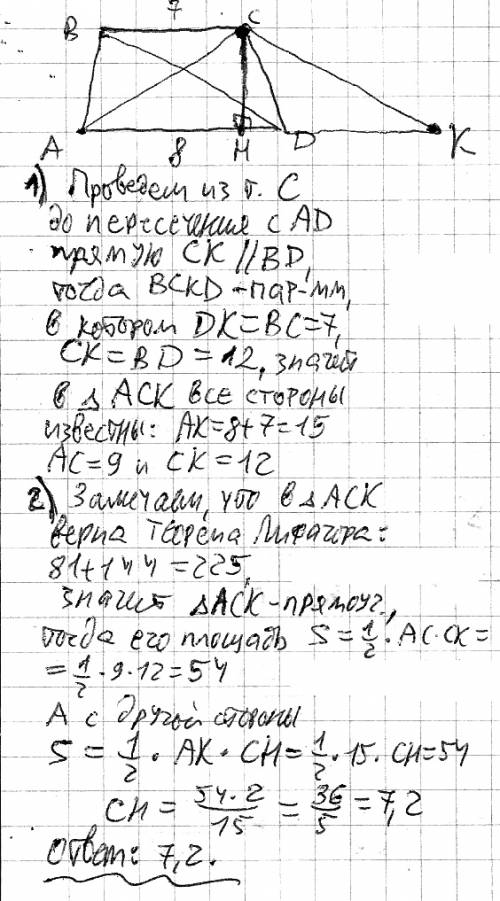 7
B C
A 8 H D K
1) Проведем из т. C
до пересечения с AD
прямую CK // BD,
тогда BCKD - пар-мм,
в котором DK = BC = 7,
CK = BD = 12, значит
в Δ ACK все стороны
известны: AK = 8+7 = 15
AC = 9 и CK = 12
2) Замечаем, что в Δ ACK
верна Теорема Пифагора:
81 + 144 = 225,
значит ΔACK - прямоуг.,
тогда его площадь S = 1/2 · AC · CK =
= 1/2 · 9 · 12 = 54
А с другой стороны
S = 1/2 · AK · CH = 1/2 · 15 · CH = 54
CH = 54·2/15 = 36/5 = 7,2
Ответ: 7,2.